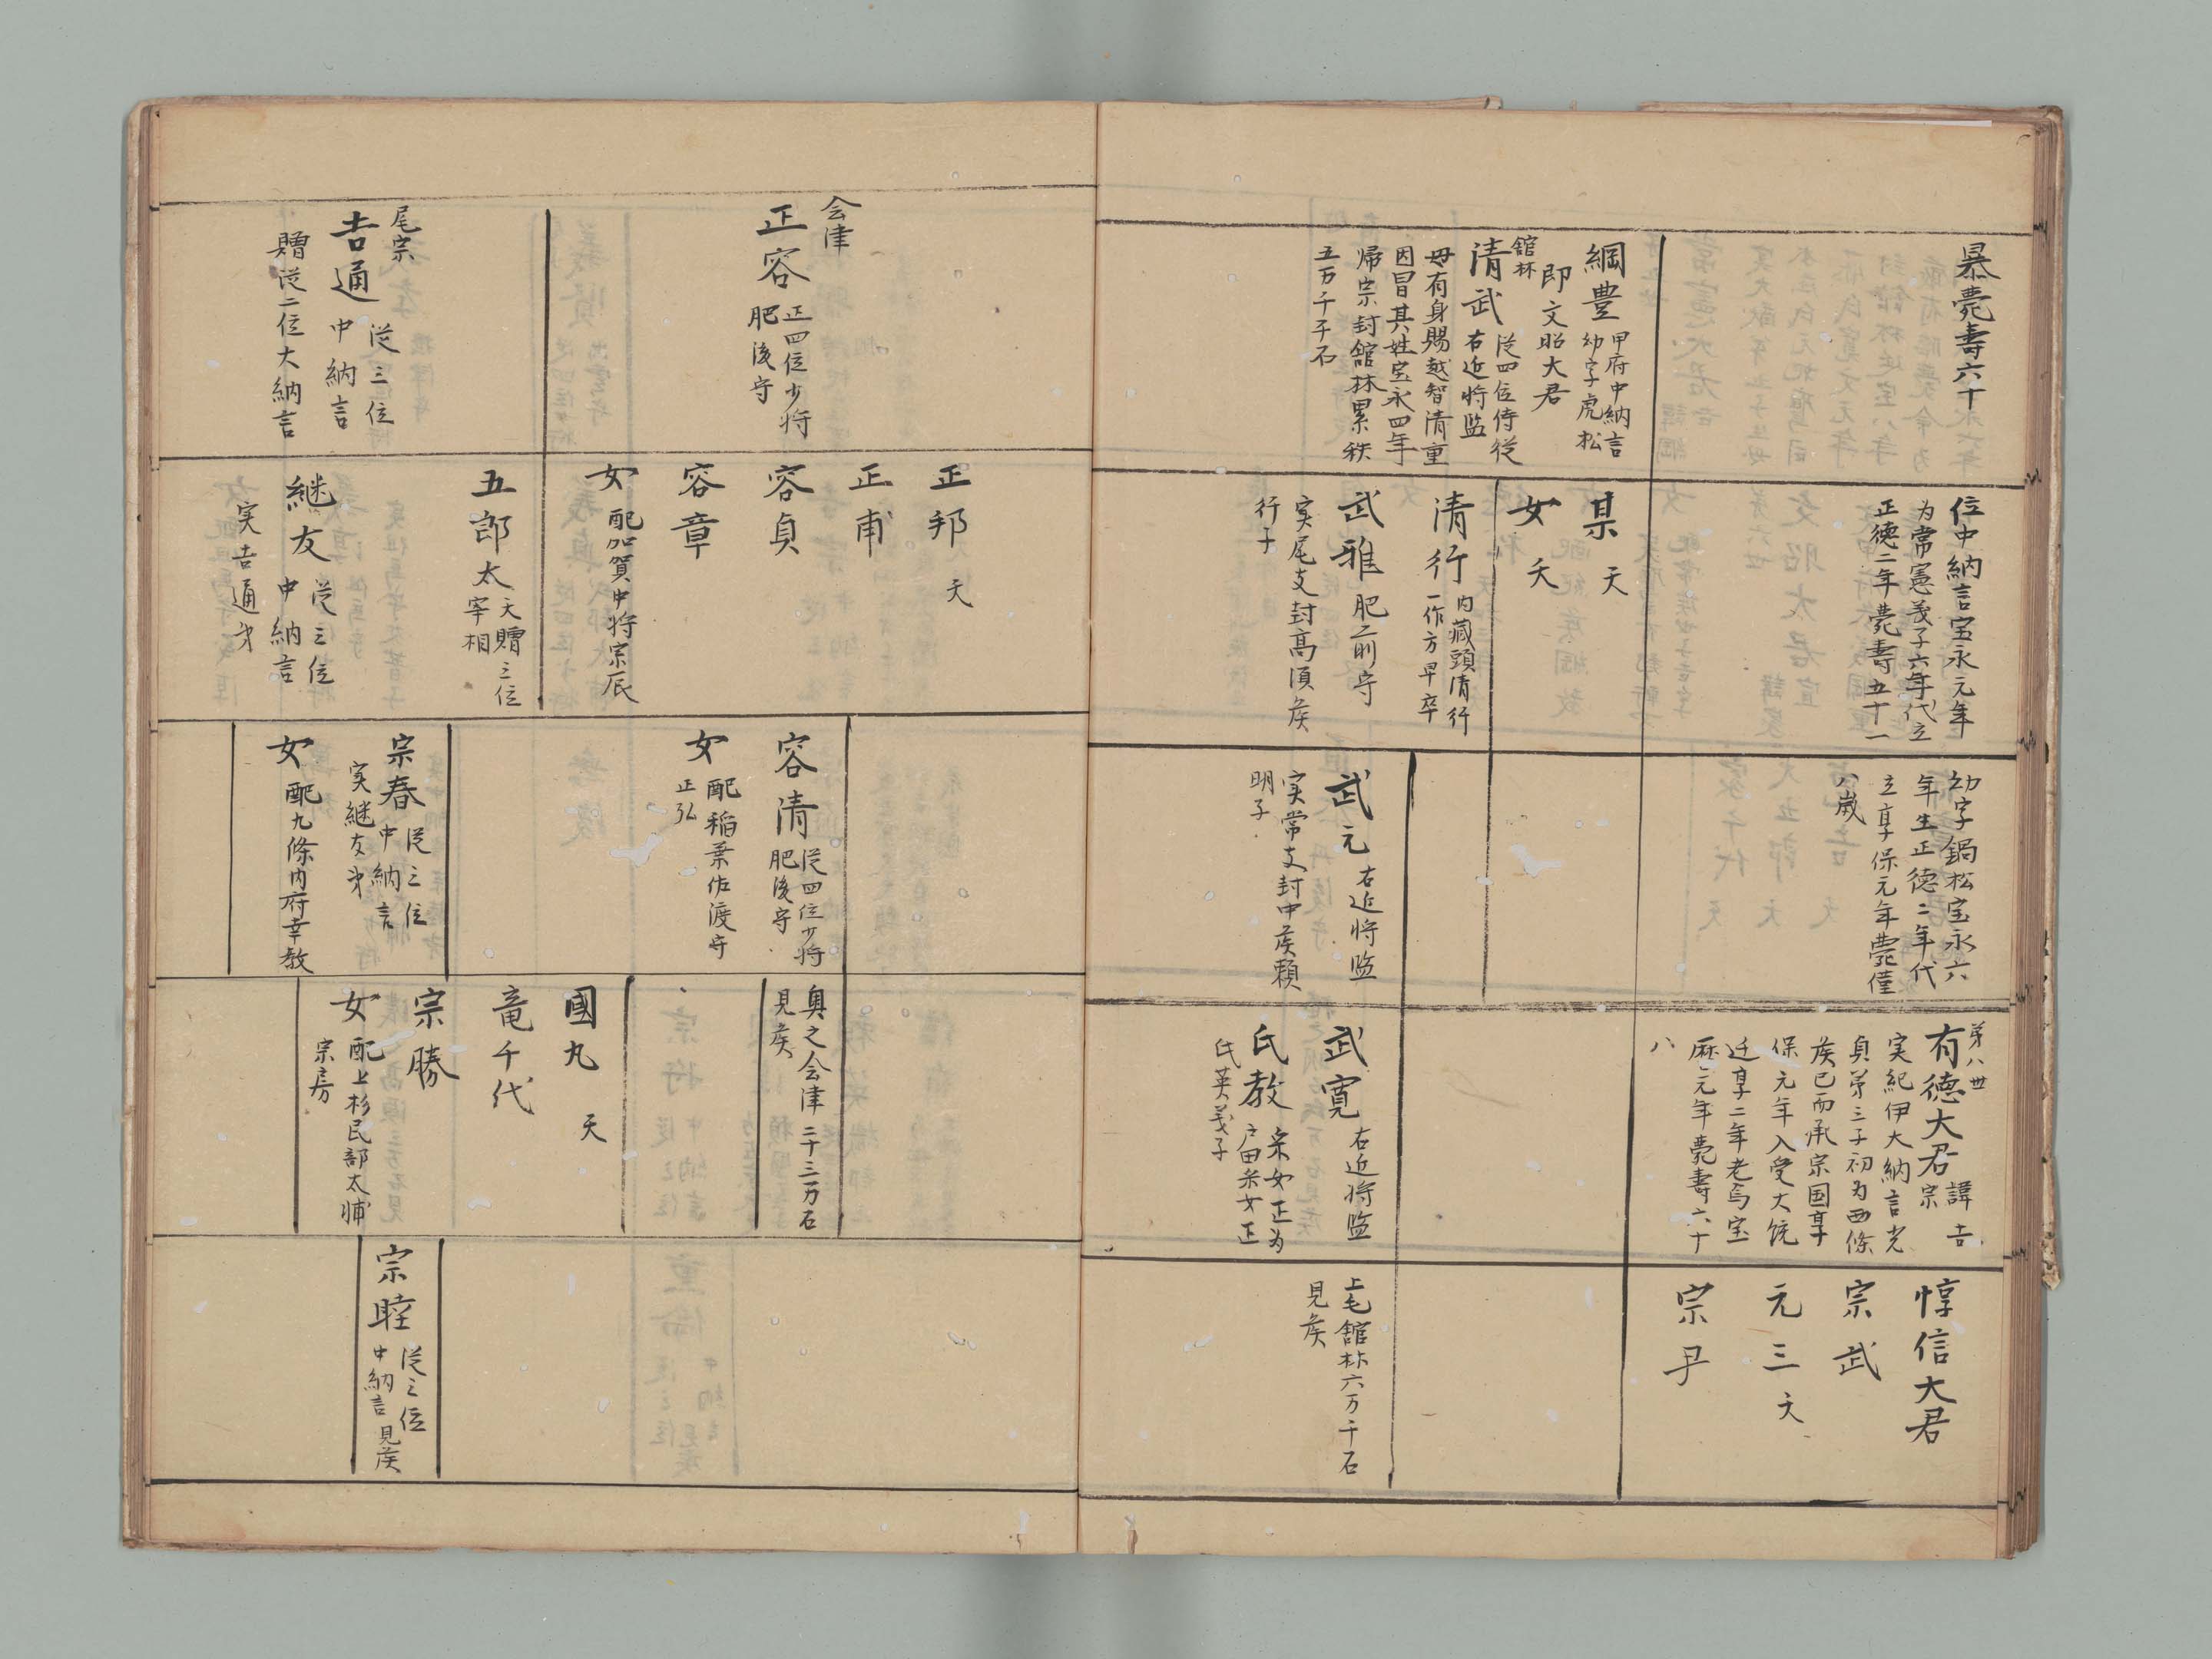 暴薨壽六十
綱豊
甲府中納言
幼字虎松
即文昭大君
舘林
清武
從四位侍從
右近将監
母有身賜越智清重
因冒其姓宝永四年
帰宗封舘林累秩
五万千千石
位中納言宝永元年
为常憲義子六年代立
正徳二年薨壽五十一
某 夭
女 夭
清行
内藏頭清行
一作方早卒
武雅 肥前守
実尾支封高須矦
行子
幼字鍋松宝永六
年生正徳二年代
立享保元年薨僅
八歳
武元 右近将監
実常支封中矦頼
明子
第八世
有徳大君 諱吉
宗
実紀伊大納言光
貞第三子初为西條
矦已而承宗国享
保元年入受大统
延享二年老焉宝
暦元年薨壽六十
八
武寛 右近将監
氏教 采女正为
戸田采女正
氏英義子
惇信大君
宗武
元三 夭
宗尹
上毛舘林六万千石
見矦
会津
正容
正四位少将
肥後守
尾宗
吉通
從三位
中納言
贈從二位大納言
正邦 夭
正甫
容貞
容章
女 配加賀中将宗辰
五郎太
夭贈三位
宰相
継友
從三位
中納言
実吉通弟
容清
從四位少将
肥後守
女 配稲葉佐渡守
正弘
宗春
從三位
中納言
実継友弟
女 配九條内府幸教
奥之会津二十三万石
見矦
國丸 夭
竜千代
宗勝
女 配上杉民部太輔
宗房
宗睦
從三位
中納言見矦